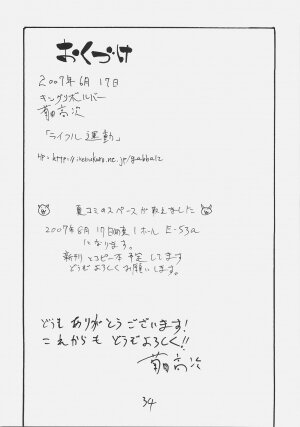 おくづけ
2007年6月17日
キングリボルバー
菊田高次
「ライフル運動」
HP: http://ikebukuro.ne.jp/gabbalz
夏コミのスペースが取えました
2007年8月17日 東1ホール E-53a
になります。
新刊とコピー本予定してます
どうぞよろしくお願いします。
どうもありがとうございます!
これからもどうぞよろしく!!
菊田高次
34